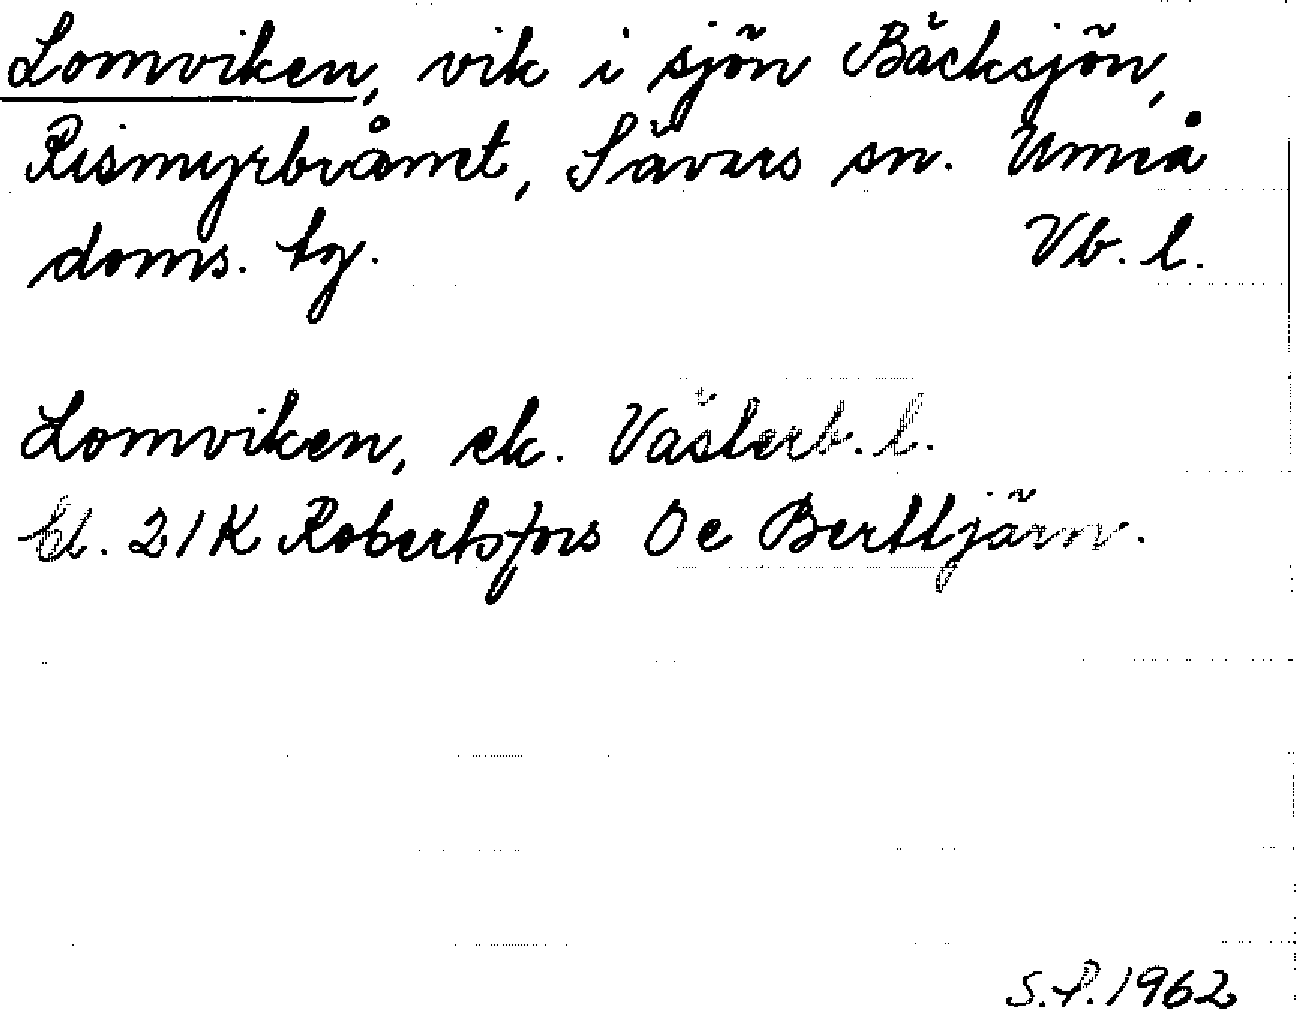 Lomviken, vik i sjön Bäcksjön,
Rismyrbrånet, Sävars sn. Umeå
doms. tg. Vb. l.
Lomviken, ek. Västerb. l.
bl. 21K Robertsfors Oc Berttjärn.
S.P. 1962